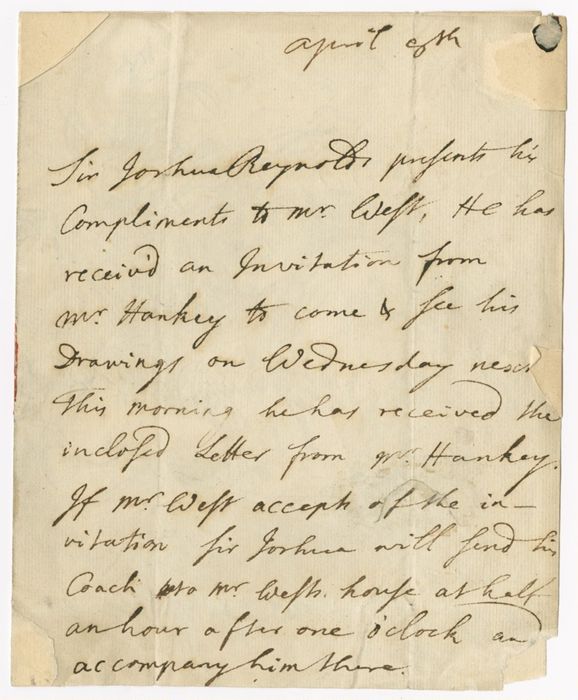 April 8th
Sir Joshua Reynolds presents his
Compliments to Mr. West, He has
receiv'd an Invitation from
Mr. Hankey to come & see his
Drawings on Wednesday next
This morning he has received the
inclosed Letter from Mr. Hankey.
If Mr. West accepts of the in-
vitation Sir Joshua will send his
Coach to Mr. Wests. house at half
an hour after one o'clock and
accompany him there.